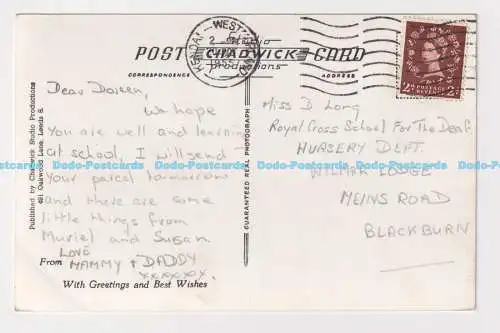 POST CARD
Studio
CHADWICK
Productions
CORRESPONDENCE
KENDAL WESTMORLAND
POSTAGE REVENUE
Dear Doreen,
We hope
You are well and learning
at school. I will send
Your parcel tomorrow
and there are some
little things from
Muriel and Susan.
LOVE
From MAMMY + DADDY
xxxxxxx
With Greetings and Best Wishes
Published by Chadwick Studio Productions
Oakwood Lane, Leeds 8.
GUARANTEED REAL PHOTOGRAPH
Miss D Long
Royal Cross School For The Deaf
NURSERY DEPT.
WILMAR LODGE
MEINS ROAD
BLACKBURN
Dodo-Postcards Dodo-Postcards Dodo-Postcards Dodo-Postcards